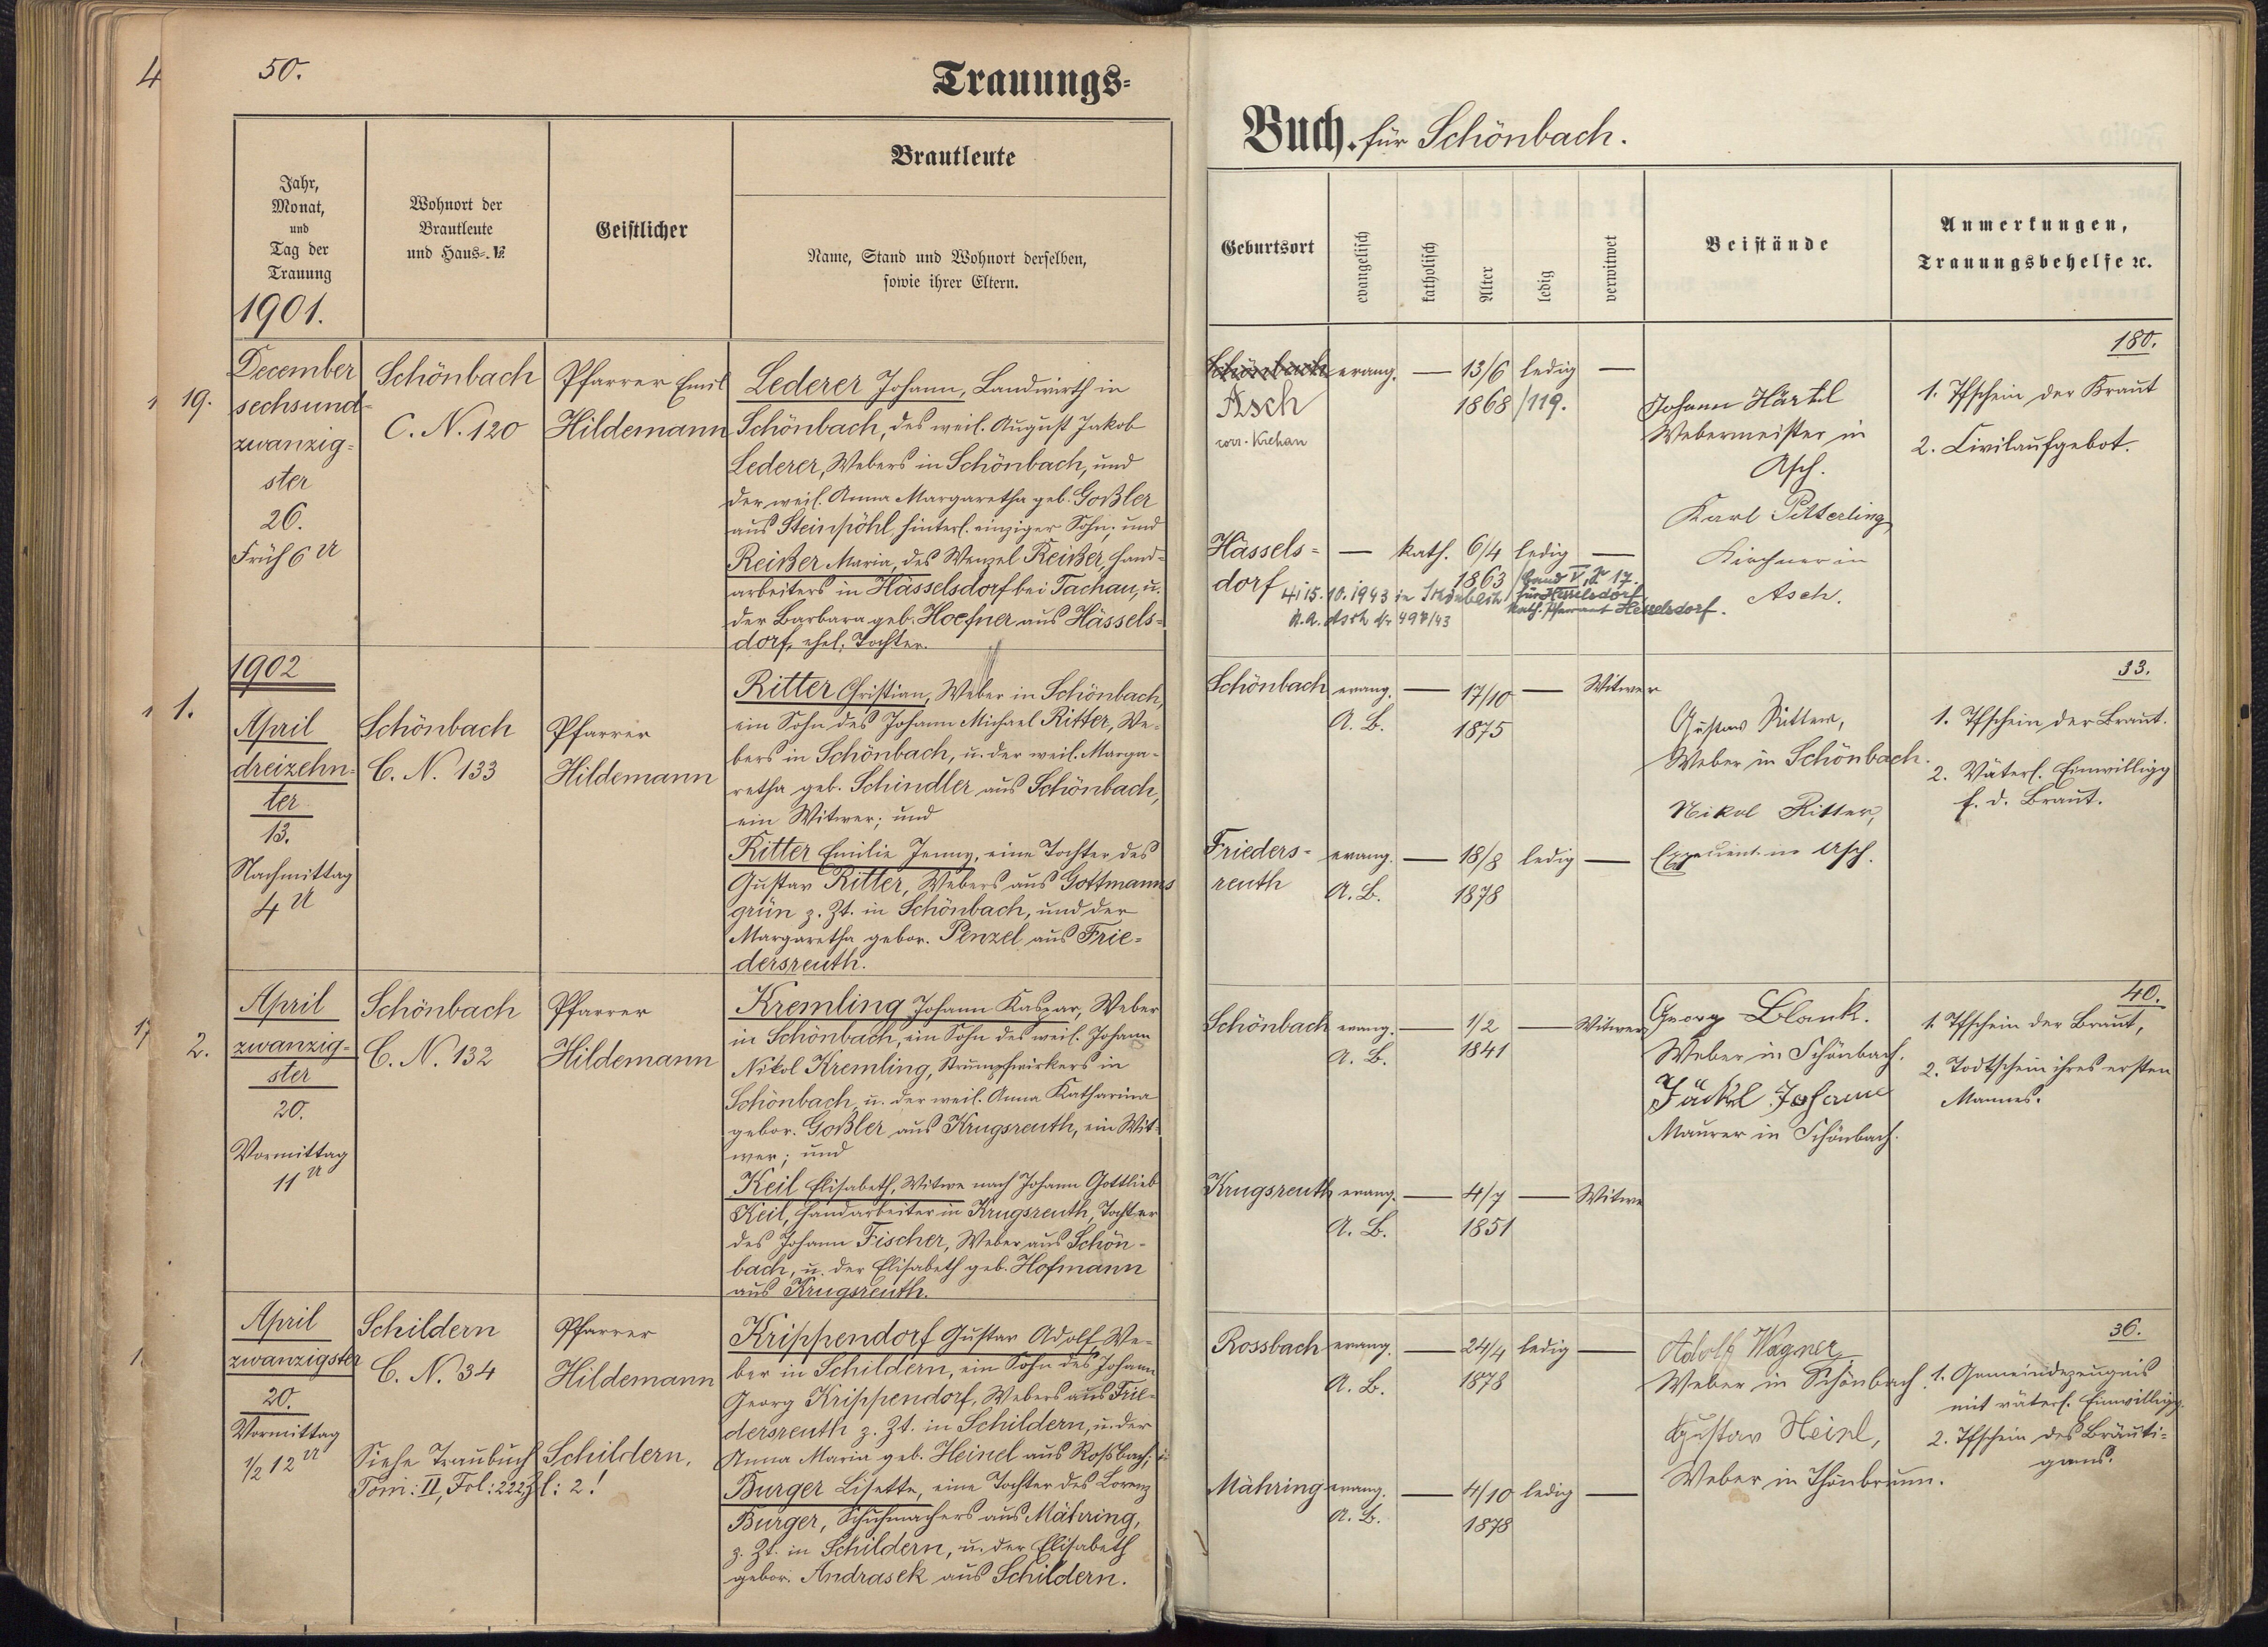 50.
Trauungs-
Jahr,
Monat,
und
Tag der
Trauung
Wohnort der
Brautleute
und Haus-№
Geistlicher
Brautleute
Name, Stand und Wohnort derselben,
sowie ihrer Eltern.
1901.
19.
December
sechsund-
zwanzig-
ster
26.
Früh 6 U
Schönbach
C. N. 120
Pfarrer Emil
Hildemann
Lederer Johann, Landwirth in
Schönbach, des weil. August Jakob
Lederer, Webers in Schönbach, und
der weil. Anna Margaretha geb. Goßler
aus Steinpöhl, hinterl. einziger Sohn; und
Reißer Maria, des Wenzel Reißer, Hand-
arbeiters in Hässelsdorf bei Tachau, u.
der Barbara geb. Hoefner aus Hässels-
dorf, ehel. Tochter.
1902
1.
April
dreizehn-
ter
13.
Nachmittag
4 U
Schönbach
C. N. 133
Pfarrer
Hildemann
Ritter Christian, Weber in Schönbach,
ein Sohn des Johann Michael Ritter, We-
bers in Schönbach, u. der weil. Marga-
retha geb. Schindler aus Schönbach,
ein Witwer; und
Ritter Emilie Jenny, eine Tochter des
Gustav Ritter, Webers aus Gottmanns
grün z. Zt. in Schönbach, und der
Margaretha gebor. Penzel aus Frie-
dersreuth.
2.
April
zwanzig-
ster
20.
Vormittag
11 U
Schönbach
C. N. 132
Pfarrer
Hildemann
Kremling Johann Kaspar, Weber
in Schönbach, ein Sohn des weil. Johann
Nikol Kremling, Strumpfwirkers in
Schönbach, u. der weil. Anna Katharina
gebor. Goßler aus Krugsreuth, ein Wit-
wer; und
Keil Elisabeth, Witwe nach Johann Gottlieb
Keil, Handarbeiter in Krugsreuth, Tochter
des Johann Fischer, Weber aus Schön-
bach, u. der Elisabeth geb. Hofmann
aus Krugsreuth.
April
zwanzigster
20.
Vormittag
½ 12 U
Schildern
C. N. 34
Pfarrer
Hildemann
Siehe Traubuch Schildern,
Tom: II, Fol: 222, Zl: 2!
Krippendorf Gustav Adolf, We-
ber in Schildern, ein Sohn des Johann
Georg Krippendorf, Webers aus Frie-
dersreuth z. Zt. in Schildern, u. der
Anna Maria geb. Heinel aus Roßbach; u.
Burger Lisette, eine Tochter des Lorenz
Burger, Schuhmachers aus Mähring,
z. Zt. in Schildern, u. der Elisabeth
gebor. Andrasek aus Schildern.
Buch. für Schönbach.
Geburtsort
evangelisch
katholisch
Alter
ledig
verwitwet
Beistände
Anmerkungen,
Trauungsbehelfe ꝛc.
Schönbach evang. — 13/6 ledig —
Asch
1868 /119.
corr. Krehan
Johann Härtel
Webermeister in
Asch.
Karl Pitterling
Kirchner in
Asch.
180.
1. Tfschein der Braut
2. Civilaufgebot.
Hässels- — kath. 6/4 ledig —
dorf
1863 /Band V, S. 17.
für Hesselsdorf
kath. Pfarramt Hesselsdorf.
15.10.1943 in
Asch Nr 497/43
Schönbach evang. — 17/10 — Witwer
A. B. 1875
Gustav Ritter,
Weber in Schönbach.
Nikol Ritter,
Expedient in Asch.
33.
1. Tfschein der Braut.
2. Väterl. Einwilligg
f. d. Braut.
Frieders- evang. — 18/8 ledig —
reuth A. B. 1878
Schönbach evang. — 1/2 — Witwer
A. B. 1841
Georg Blank.
Weber in Schönbach.
Jäckel Johann
Maurer in Schönbach.
40.
1. Tfschein der Braut,
2. Todtschein ihres ersten
Mannes.
Krugsreuth evang. — 4/7 — Witwe
A. B. 1851
Rossbach evang. — 24/4 ledig —
A. B. 1878
Adolf Wagner
Weber in Schönbach.
Gustav Heinl,
Weber in Thonbrunn.
36.
1. Gemeindezeugnis
mit väterl. Einwilligg.
2. Tfschein des Bräuti-
gams.
Mähring evang. — 4/10 ledig —
A. B. 1878